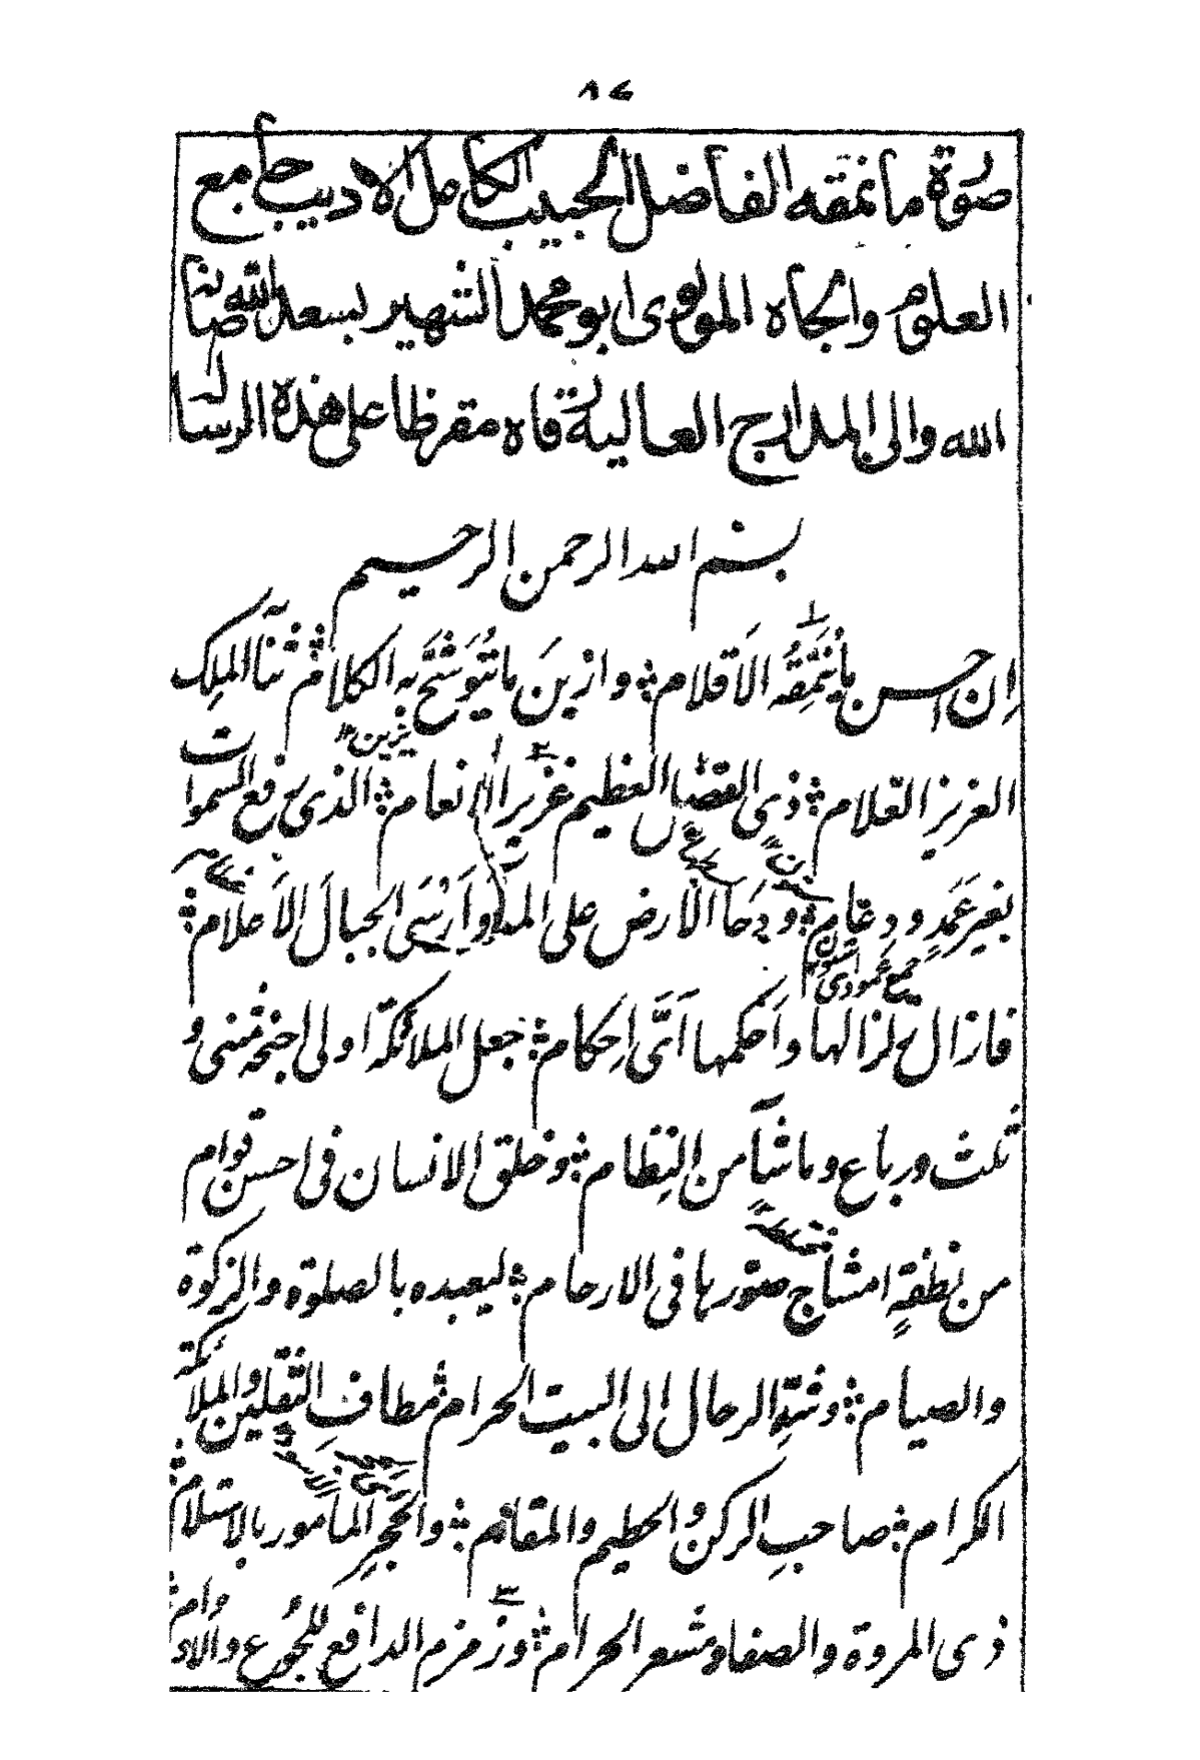 ٨٤
صورة ما نمقه الفاضل الحبيب الكامل الاديب جامع
العلوم والجاه المولوى ابو محمد الشهير بسعد الله صانه
الله والى المدارج العالية رقاه مقرظا على هذه الرسالة
بسم الله الرحمن الرحيم
اِن احسن ما يُنَمِّقُه الاَقلام ؛ وازين ما يتوشَّح به الكلام ؛ ثنآ الملِك
العزيز العلام ؛ ذى الفضل العظيم غزير الانعام ؛ الذى رفع السموات
بغير عَمَدٍ ودعام ؛ ودَحا الارض على المآ واَرْسَى الجبال الاَعلام ؛
فازال زلزالها واَحكمها اَتَّى اِحكام ؛ جعل الملائكة اولى اجنحة مثنى و
ثلث ورباع وما شآ من النِظام ؛ وخلق الانسان فى احسن قوام
من نطفةٍ امشاج صوّرها فى الارحام ؛ ليعبده بالصلوة والزكوة
والصيام ؛ وشدِّ الرحال الى البيت الحرام ؛ مطافِ الثقلين والملائكة
الكرام ؛ صاحبِ الركن والحطيم والمقام ؛ والحَجَرِ المامور بالاستلام ؛
ذى المروة والصفا ومشعر الحرام ؛ وزمزم الدافع للجُوع والاُوام ؛